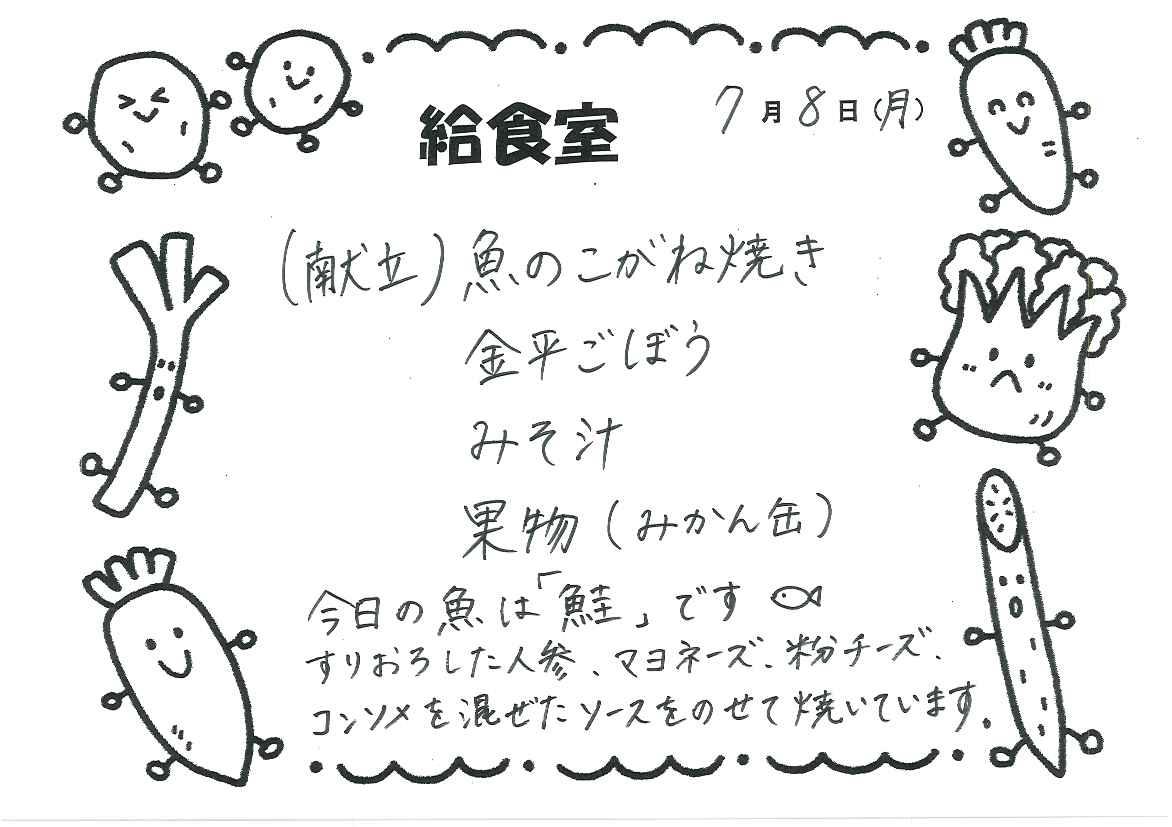 給食室
7月8日(月)
(献立)魚のこがね焼き
金平ごぼう
みそ汁
果物(みかん缶)
今日の魚は「鮭」です
すりおろした人参、マヨネーズ、粉チーズ、
コンソメを混ぜたソースをのせて焼いています。